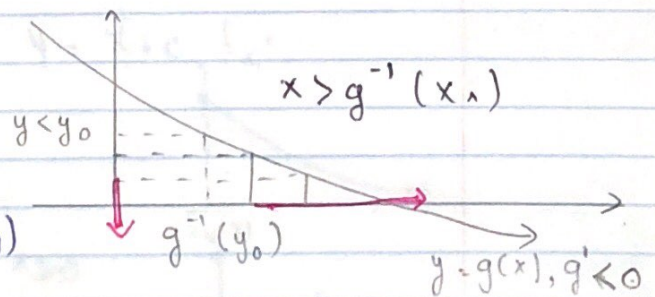 x > g⁻¹(x₁)
y < y₀
)
g⁻¹(y₀)
y = g(x), g' < 0